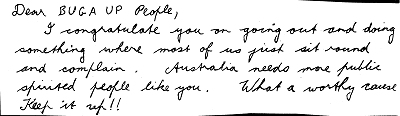 Dear BUGA UP People,
I congratulate you on going out and doing
something where most of us just sit round
and complain. Australia needs more public
spirited people like you. What a worthy cause
Keep it up!!